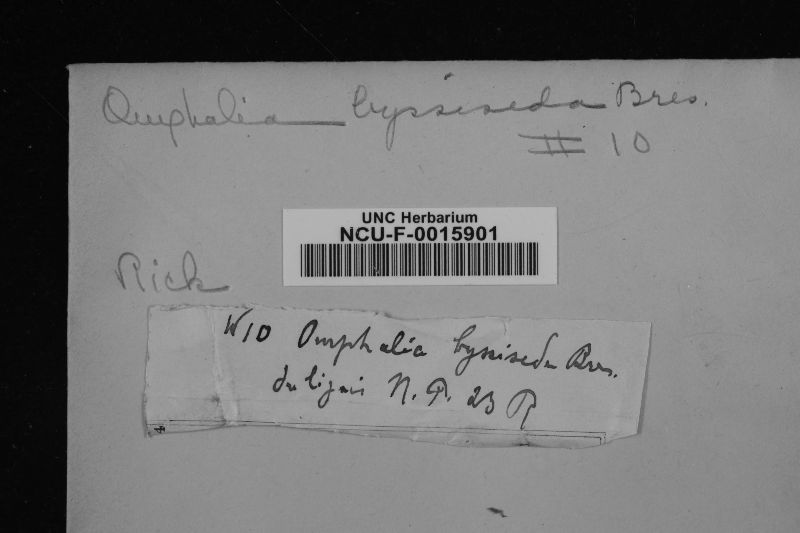 Omphalia byssiseda Bres.
# 10
UNC Herbarium
NCU-F-0015901
Rick
N10 Omphalia byssiseda Bres.
in lignis N. P. 23 R